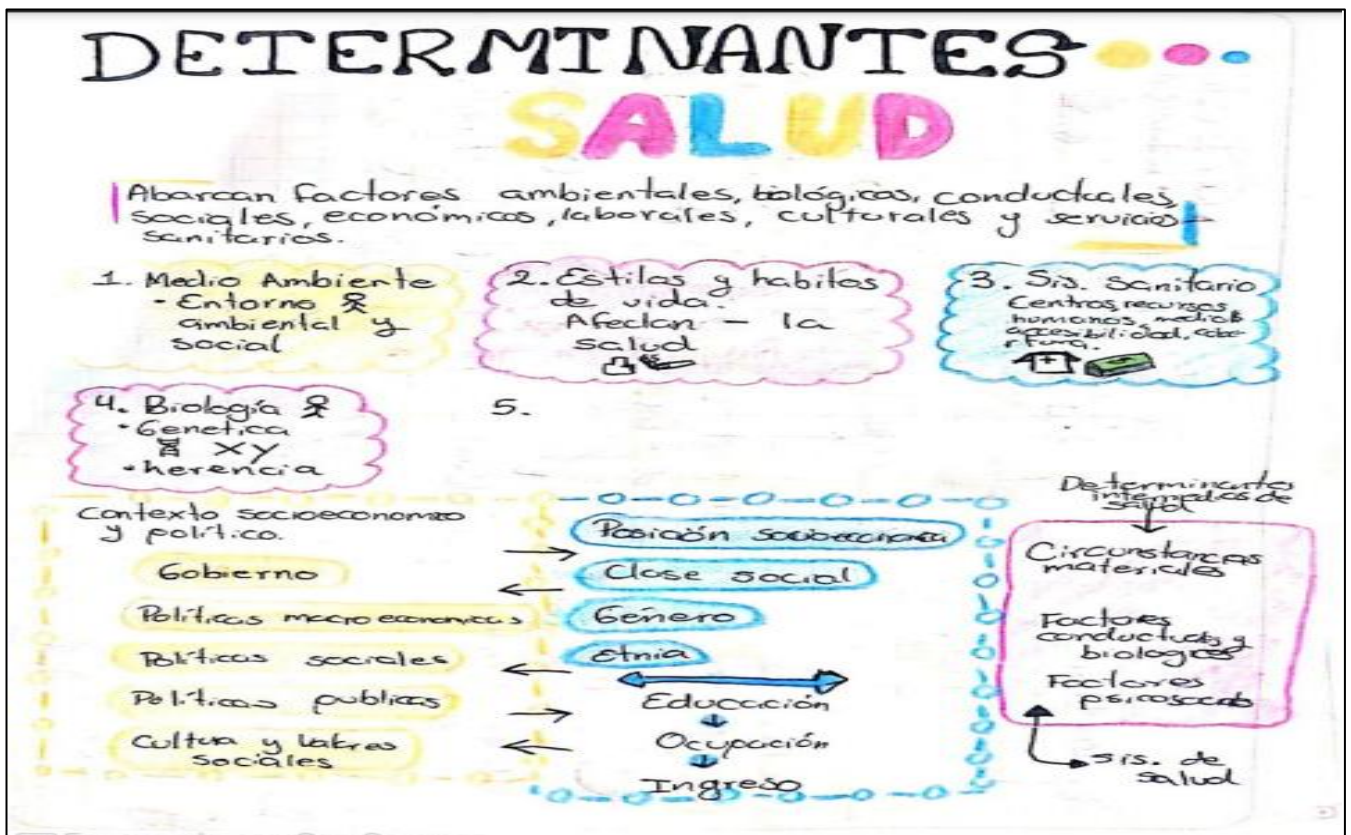 DETERMINANTES
SALUD
Abarcan factores ambientales, biológicos, conductuales,
sociales, económicos, laborales, culturales y servicios
sanitarios.
1. Medio Ambiente
• Entorno
ambiental y
social
2. Estilos y habitos
de vida.
Afectan - la
salud
3. Sis. Sanitario
Centros, recursos
humanos, medios
accesibilidad, cobe
rtura.
4. Biología
• Genetica
XY
• herencia
5.
Contexto socioeconomico
y político.
Gobierno
Políticas macroeconomicas
Políticas sociales
Políticas publicas
Cultura y valores
sociales
Posición socioeconomica
Clase social
Género
Etnia
Educación
Ocupación
Ingreso
Determinantes
intermedios de
salud
Circunstancias
materiales
Factores
conductuales y
biologicos
Factores
sis. de
salud